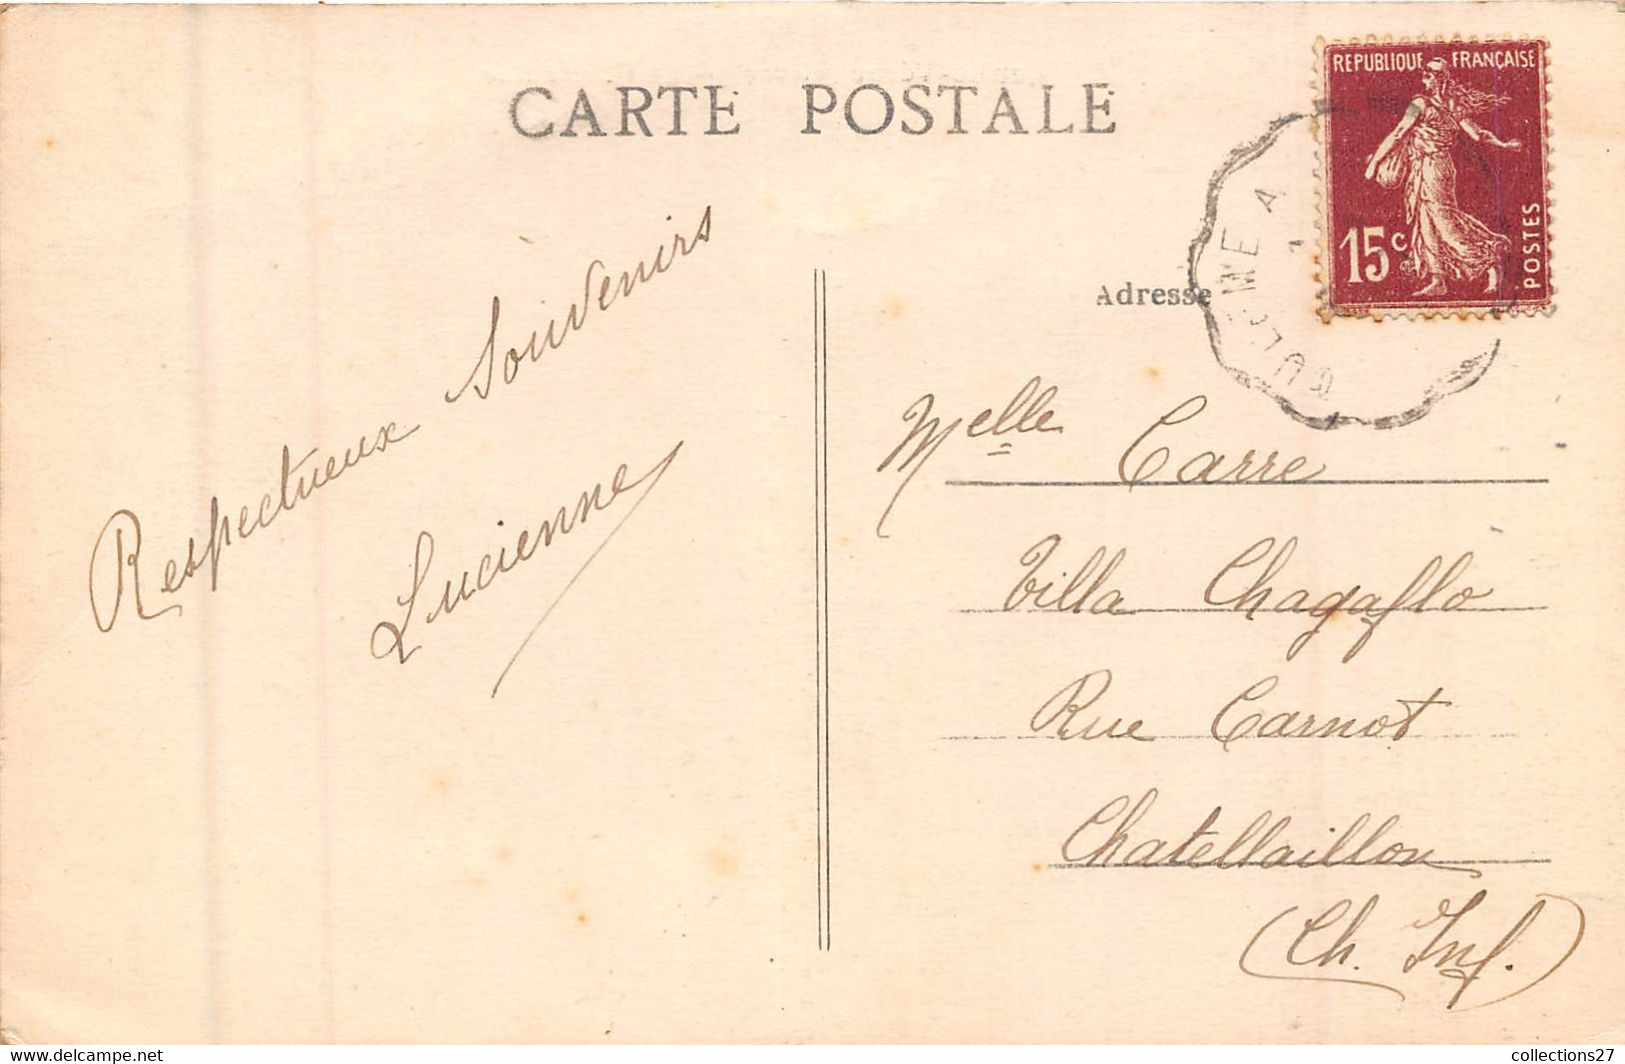 CARTE POSTALE
REPUBLIQUE FRANÇAISE
15c
POSTES
Adresse
Respectueux Souvenirs
Lucienne
Melle Carre
Villa Chagaflo
Rue Carnot
Chatellaillon
(Ch. Inf.)
www.delcampe.net
collections27